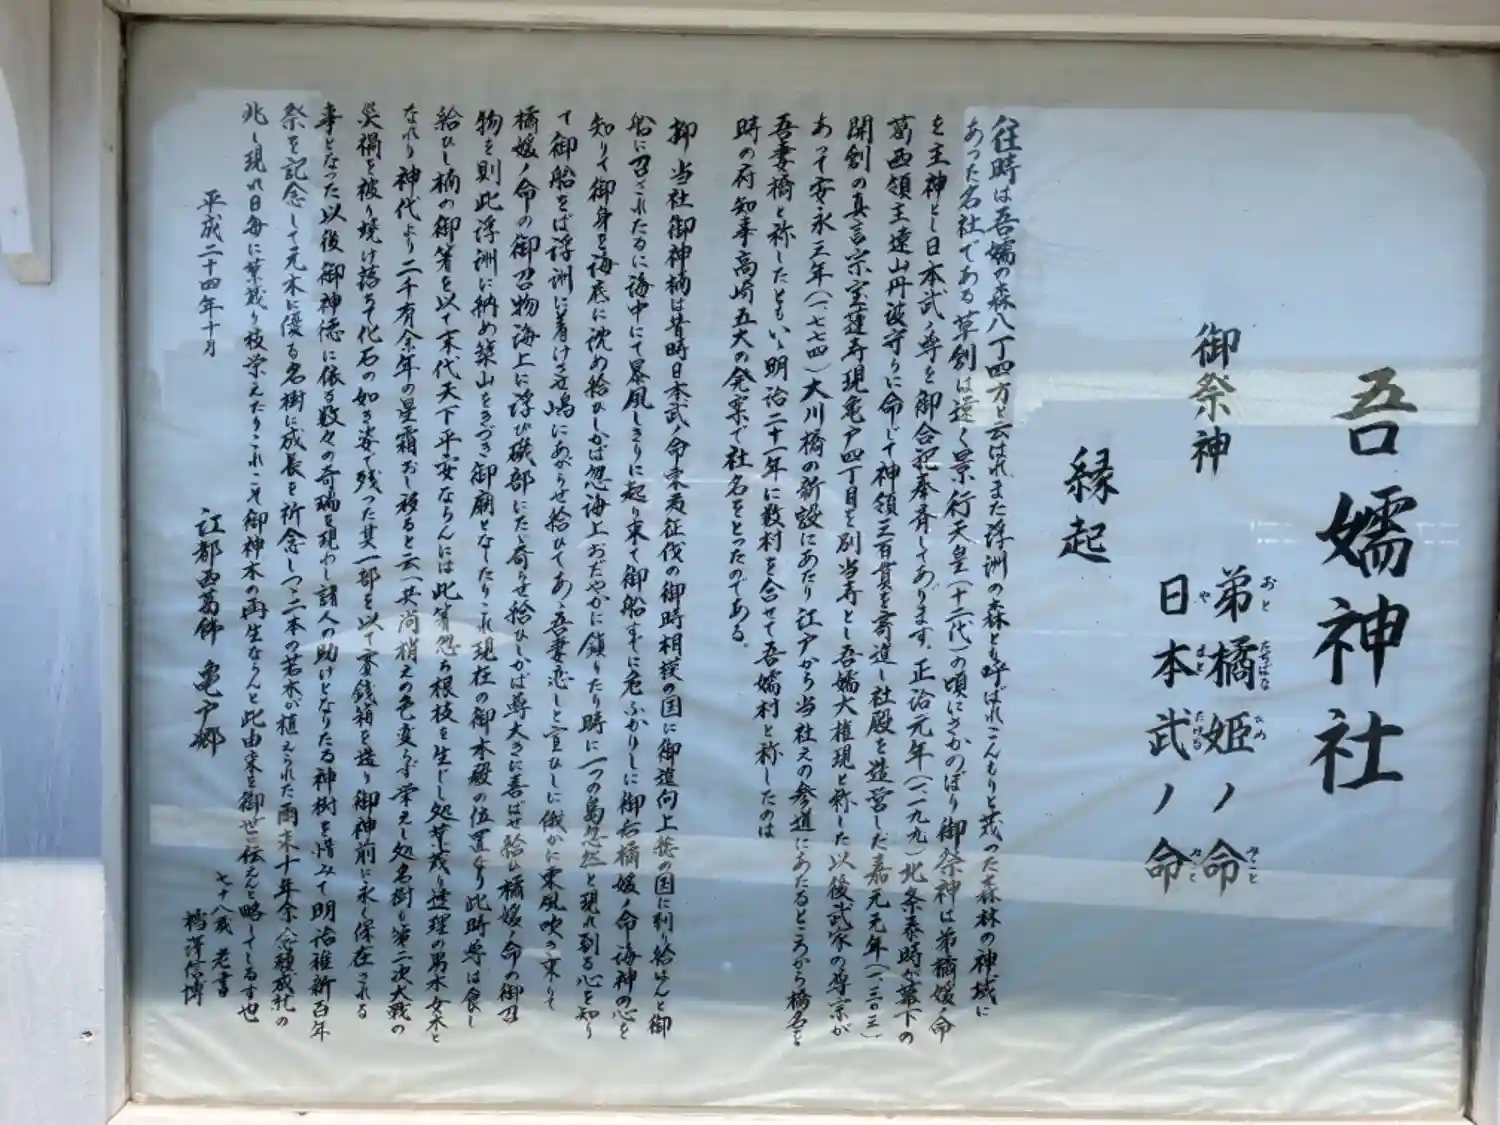 吾嬬神社
御祭神
弟橘姫ノ命
おとたちばなひめみこと
日本武ノ命
やまとたけるみこと
縁起
往時は吾嬬の森八丁四方と云はれ、また浮洲の森とも呼ばれこんもりと茂った森林の神域に
あった名社である草創は遠く景行天皇(十二代)の頃にさかのぼり御祭神は弟橘媛ノ命
を主神とし日本武ノ尊を御合祀奉斉してあります。正治元年(一一九九)北条泰時が幕下の
葛西領主遠山丹波守らに命じて神領三百貫を寄進し社殿を造営しだ嘉元元年(一三〇三)
開創の真言宗宝蓮寺現亀戸四丁目を別当寺とし吾嬬大権現と称した以後武家の尊宗が
あって安永三年(一七七四)大川橋の新設にあたり江戸から当社えの参道にあたるところから橋名を
吾妻橋と称したともいゝ明治二十一年に数村を合せて吾嬬村と称したのは
時の府知事高崎五六の発案で社名をとったのである。
抑当社御神楠は昔時日本武ノ命東夷征伐の御時相模の国に御進向上総の国に到り給はんと御
船に召されたるに海中にて暴風しきりに起り来て御船すでに危ふかりしに御后橘媛ノ命海神の心を
知りて御身を海底に沈め給ひしかば忽海上おだやかに鎮りたり時に一つの島忽然と現れ到る心を知り
て御船をば浮洲に着けさせ嶋にあがらせ給ひてあゝ吾妻恋しと宣ひしに俄かに東風吹き来りて
橘媛ノ命の御召物海上に浮び磯部にたゞ寄らせ給ひしかば尊大きに喜ばせ給ひ橘媛ノ命の御召
物を則此浮洲に納め築山をきづき御廟となしたりこれ現在の御本殿の位置なり此時尊は食し
給ひし楠の御箸を以て末代天下平安ならんには此箸忽ち根枝を生じし処葉茂り連理の男木女木と
なれり神代より二千有余年の星霜おし移ると云へ共尚梢えの色変らず栄えし処名樹も第二次大戦の
災禍を被り焼け落ちて化石の如き姿で残った其一部を以て賽銭箱を造り御神前に永く保存される
事となった以後御神徳に依る数々の奇瑞を現わし諸人の助けとなりたる神樹を惜みて明治維新百年
祭を記念して元木に優る名樹に成長を祈念しつゝ二本の若木が植えられた爾来十年余念願成就の
兆し現れ日毎に葉茂り枝栄えたりこれこそ御神木の再生ならんと此由来を御世に伝えんと略してしるす也
平成二十四年十月
江都西葛飾 亀戸郷
七十八歳 老書
信博